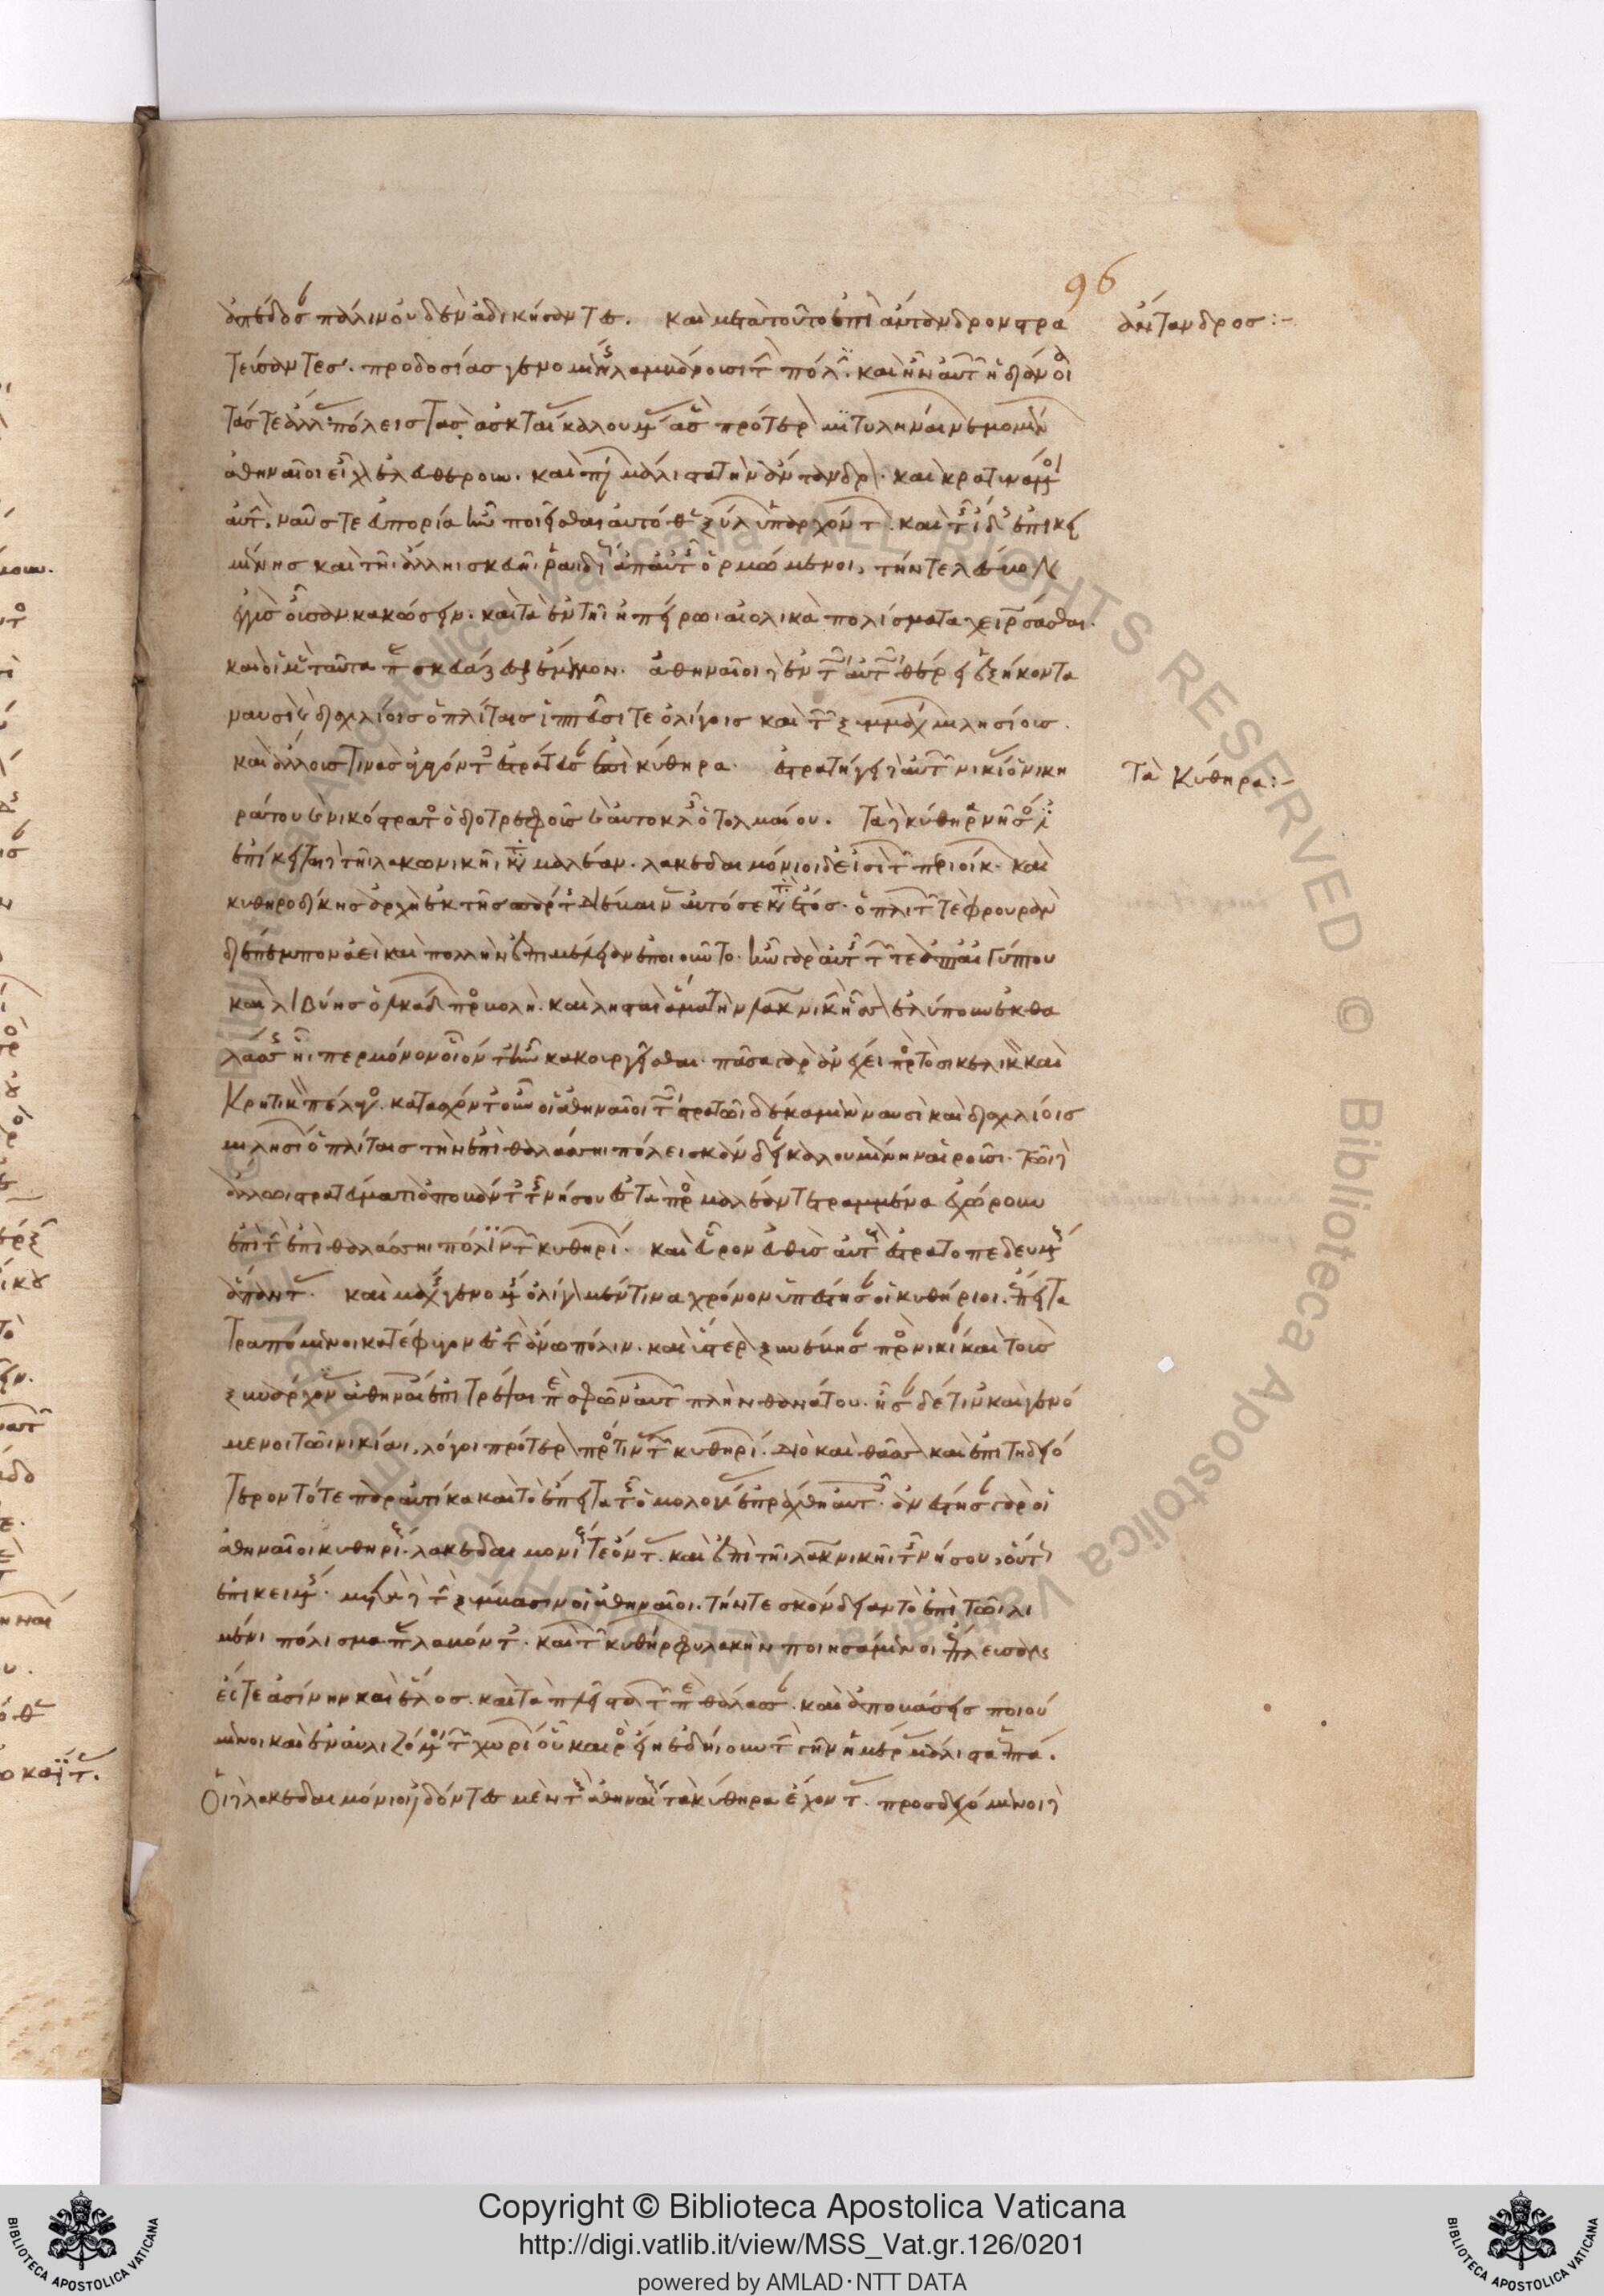 96
ἀπέδοσαν πάλιν οὐδὲν ἀδικήσαντες. καὶ μετὰ τοῦτο ἐπὶ ἄντανδρον στρα
ἄντανδρος :-
τεύσαντες. προδοσίας γενομένης λαμβάνουσι τὴν πόλιν. καὶ ἦν αὐτῶν ἡ διάνοια
τάς τε ἄλλας πόλεις τὰς ἀκταίας καλουμένας ἃς πρότερον μιτυληναίων νεμομένων
ἀθηναῖοι εἶχον ἐλευθεροῦν. καὶ πάντων μάλιστα τὴν ἄντανδρον. καὶ κρατυνάμενοι
αὐτήν, ναῦς τε εὐπορία ἦν ποιεῖσθαι αὐτόθεν ξύλων ὑπαρχόντων. καὶ τῆς ἴδης ἐπικει
μένης καὶ τῆι ἄλληι σκευῆι ῥαιδίως ἀπ' αὐτῆς ὁρμώμενοι, τήν τε λέσβον
ἐγγὺς οὖσαν κακώσειν. καὶ τὰ ἐν τῆι ἠπείρωι αἰολικὰ πολίσματα χειρώσασθαι.
καὶ οἱ μὲν ταῦτα παρασκευάζεσθαι ἔμελλον. ἀθηναῖοι δὲ ἐν τῶ αὐτῶ θέρει ἑξήκοντα
ναυσὶ καὶ δισχιλίοις ὁπλίταις ἱππεῦσί τε ὀλίγοις καὶ τῶν ξυμμάχων μιλησίους.
καὶ ἄλλους τινὰς ἀγαγόντες ἐστράτευσαν ἐπὶ κύθηρα. ἐστρατήγει δὲ αὐτῶν νικίας ὁ νικη
Τὰ Κύθηρα :-
ράτου καὶ νικόστρατος ὁ διοτρεφοῦς καὶ αὐτοκλῆς ὁ τολμαίου. τὰ δὲ κύθηρα νῆσός ἐστι
ἐπίκειται δὲ τῆι λακωνικῆι κατὰ μαλέαν. λακεδαιμόνιοι δ' εἰσὶ τῶν περιοίκων. καὶ
κυθηροδίκης ἀρχὴ ἐκ τῆς σπάρτης διέβαινεν αὐτόσε κατὰ ἔτος. ὁπλιτῶν τε φρουρὰν
διέπεμπον ἀεὶ καὶ πολλὴν ἐπιμέλειαν ἐποιοῦντο. ἦν γὰρ αὐτοῖς τῶν τε ἀπ' αἰγύπτου
καὶ λιβύης ὁλκάδων προσβολὴ. καὶ λησταὶ ἅμα τὴν λακωνικὴν ἧσσον ἐλύπουν ἐκ θα
λάσσης ἧιπερ μόνον οἷόν τε ἦν κακουργεῖσθαι. πᾶσα γὰρ ἀνέχει πρὸς τὸ σικελικὸν καὶ
Κρητικὸν πέλαγος. κατασχόντες οὖν οἱ ἀθηναῖοι τῶ στρατῶι δέκα μὲν ναυσὶ καὶ δισχιλίοις
μιλησίων ὁπλίταις τὴν ἐπὶ θαλάσσηι πόλιν σκάνδειαν καλουμένην αἱροῦσι. τῶι δὲ
ἄλλωι στρατεύματι ἀποβάντες τῆς νήσου ἐς τὰ πρὸς μαλέαν τετραμμένα ἐχώρουν
ἐπὶ τὴν ἐπὶ θαλάσσηι πόλιν τῶν κυθηρίων. καὶ εὗρον εὐθὺς αὐτοὺς ἐστρατοπεδευμένους
ἅπαντας. καὶ μάχης γενομένης ὀλίγον μέν τινα χρόνον ὑπέστησαν οἱ κυθήριοι. ἔπειτα
τραπόμενοι κατέφυγον ἐς τὴν ἄνω πόλιν. καὶ ὕστερον ξυνέβησαν πρὸς νικίαν καὶ τοὺς
ξυνάρχοντας ἀθηναίοις ἐπιτρέψαι περὶ σφῶν αὐτῶν πλὴν θανάτου. ἦσαν δέ τινες καὶ γενό
μενοι τῶι νικίαι, λόγοι πρότερον πρός τινας τῶν κυθηρίων. διὸ καὶ θᾶσσον καὶ ἐπιτηδειό
τερον τό τε παραυτίκα καὶ τὸ ἔπειτα τῆς ὁμολογίας ἐπράχθη αὐτοῖς. ἀνέστησαν γὰρ οἱ
ἀθηναῖοι κυθηρίους. λακεδαιμονίους τε ὄντας. καὶ ἐπὶ τῆι λακωνικῆι τῆς νήσου, οὕτως
ἐπικειμένης. μετὰ δὲ τὴν ξύμβασιν οἱ ἀθηναῖοι. τήν τε σκάνδειαν τὸ ἐπὶ τῶι λι
μένι πόλισμα παραλαβόντες. καὶ τῶν κυθήρων φυλακὴν ποιησάμενοι ἔπλευσαν
ἔς τε ἀσίνην καὶ ἕλος. καὶ τὰ πλεῖστα τῶν περὶ θάλασσαν. καὶ ἀποβάσεις ποιού
μενοι καὶ ἐναυλιζόμενοι τῶν χωρίων οὗ καιρὸς εἴη ἐδήιουν τὴν γῆν ἡμέρας μάλιστα ἑπτά.
Οἱ δὲ λακεδαιμόνιοι, ἰδόντες μὲν τοὺς ἀθηναίους τὰ κύθηρα ἔχοντας. προσδεχόμενοι δὲ
Copyright © Biblioteca Apostolica Vaticana
http://digi.vatlib.it/view/MSS_Vat.gr.126/0201
powered by AMLAD·NTT DATA